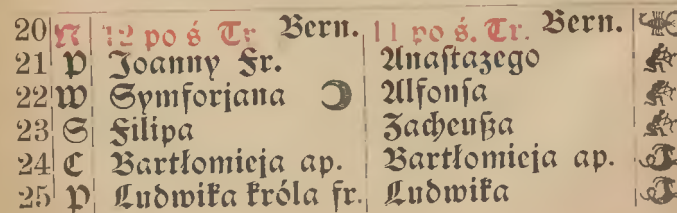 20 N 12 po ś Tr Bern. 11 po ś. Tr. Bern.
21 P Joanny Fr. Anastazego
22 W Symforjana Alfonsa
23 S Filipa Zacheusza
24 C Bartłomieja ap. Bartłomieja ap.
25 P Ludwika króla fr. Ludwika